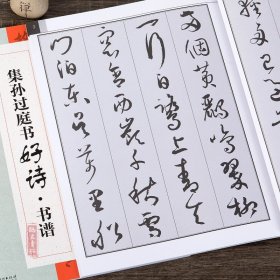 集孙过庭书
好诗·书谱
两個黄鸝鳴翠柳
一行白鷺上青天
窗含西嶺千秋雪
门泊東吴萬里船